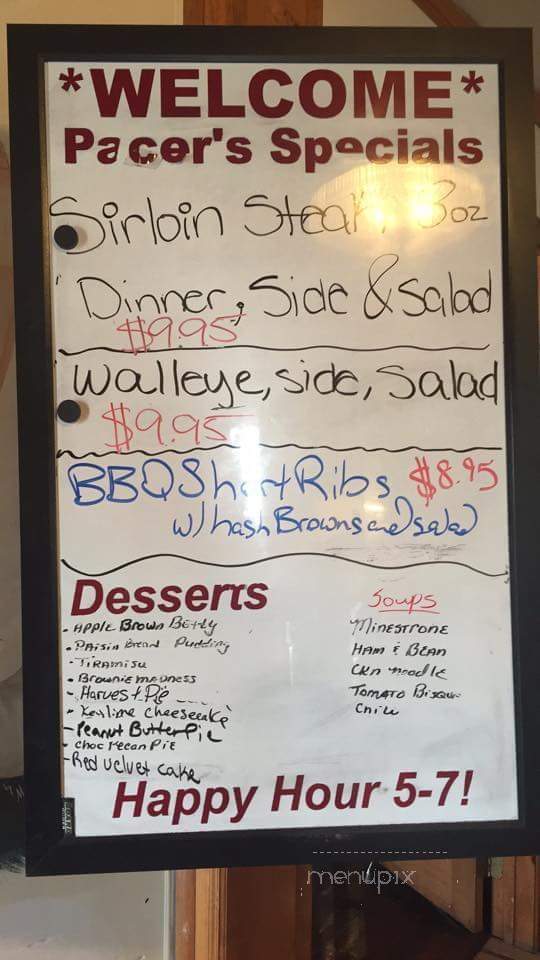 *WELCOME*
Pacer's Specials
Sirloin Steak 8oz
Dinner, Side & Salad
$9.95
Walleye, side, Salad
$9.95
BBQ Short Ribs $8.95
w/ hash Browns and salad
Desserts
- Apple Brown Betty
- Raisin Bread Pudding
- Tiramisu
- Brownie madness
- Harvest Pie
- Key lime cheesecake
- Peanut Butter Pie
- choc Pecan Pie
- Red velvet cake
Soups
Minestrone
Ham & Bean
Ckn noodle
Tomato Bisque
Chili
Happy Hour 5-7!
menupix